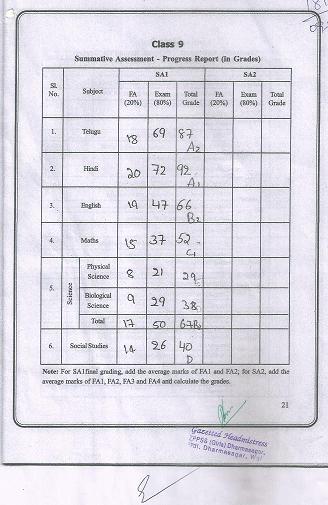 Class 9
Summative Assessment - Progress Report (in Grades)
Sl. No. Subject SA1 SA2
FA (20%) Exam (80%) Total Grade FA (20%) Exam (80%) Total Grade
1. Telugu 18 69 87 A2
2. Hindi 20 72 92 A1
3. English 19 47 66 B2
4. Maths 15 37 52 C1
5. Science Physical Science 8 21 29
Biological Science 9 29 38
Total 17 50 67 B2
6. Social Studies 14 26 40 D
Note: For SA1 final grading, add the average marks of FA1 and FA2; for SA2, add the
average marks of FA1, FA2, FA3 and FA4 and calculate the grades.
21
Gazetted Headmistress
ZPPSS (Girls) Dharmasagar,
Dharmasagar,